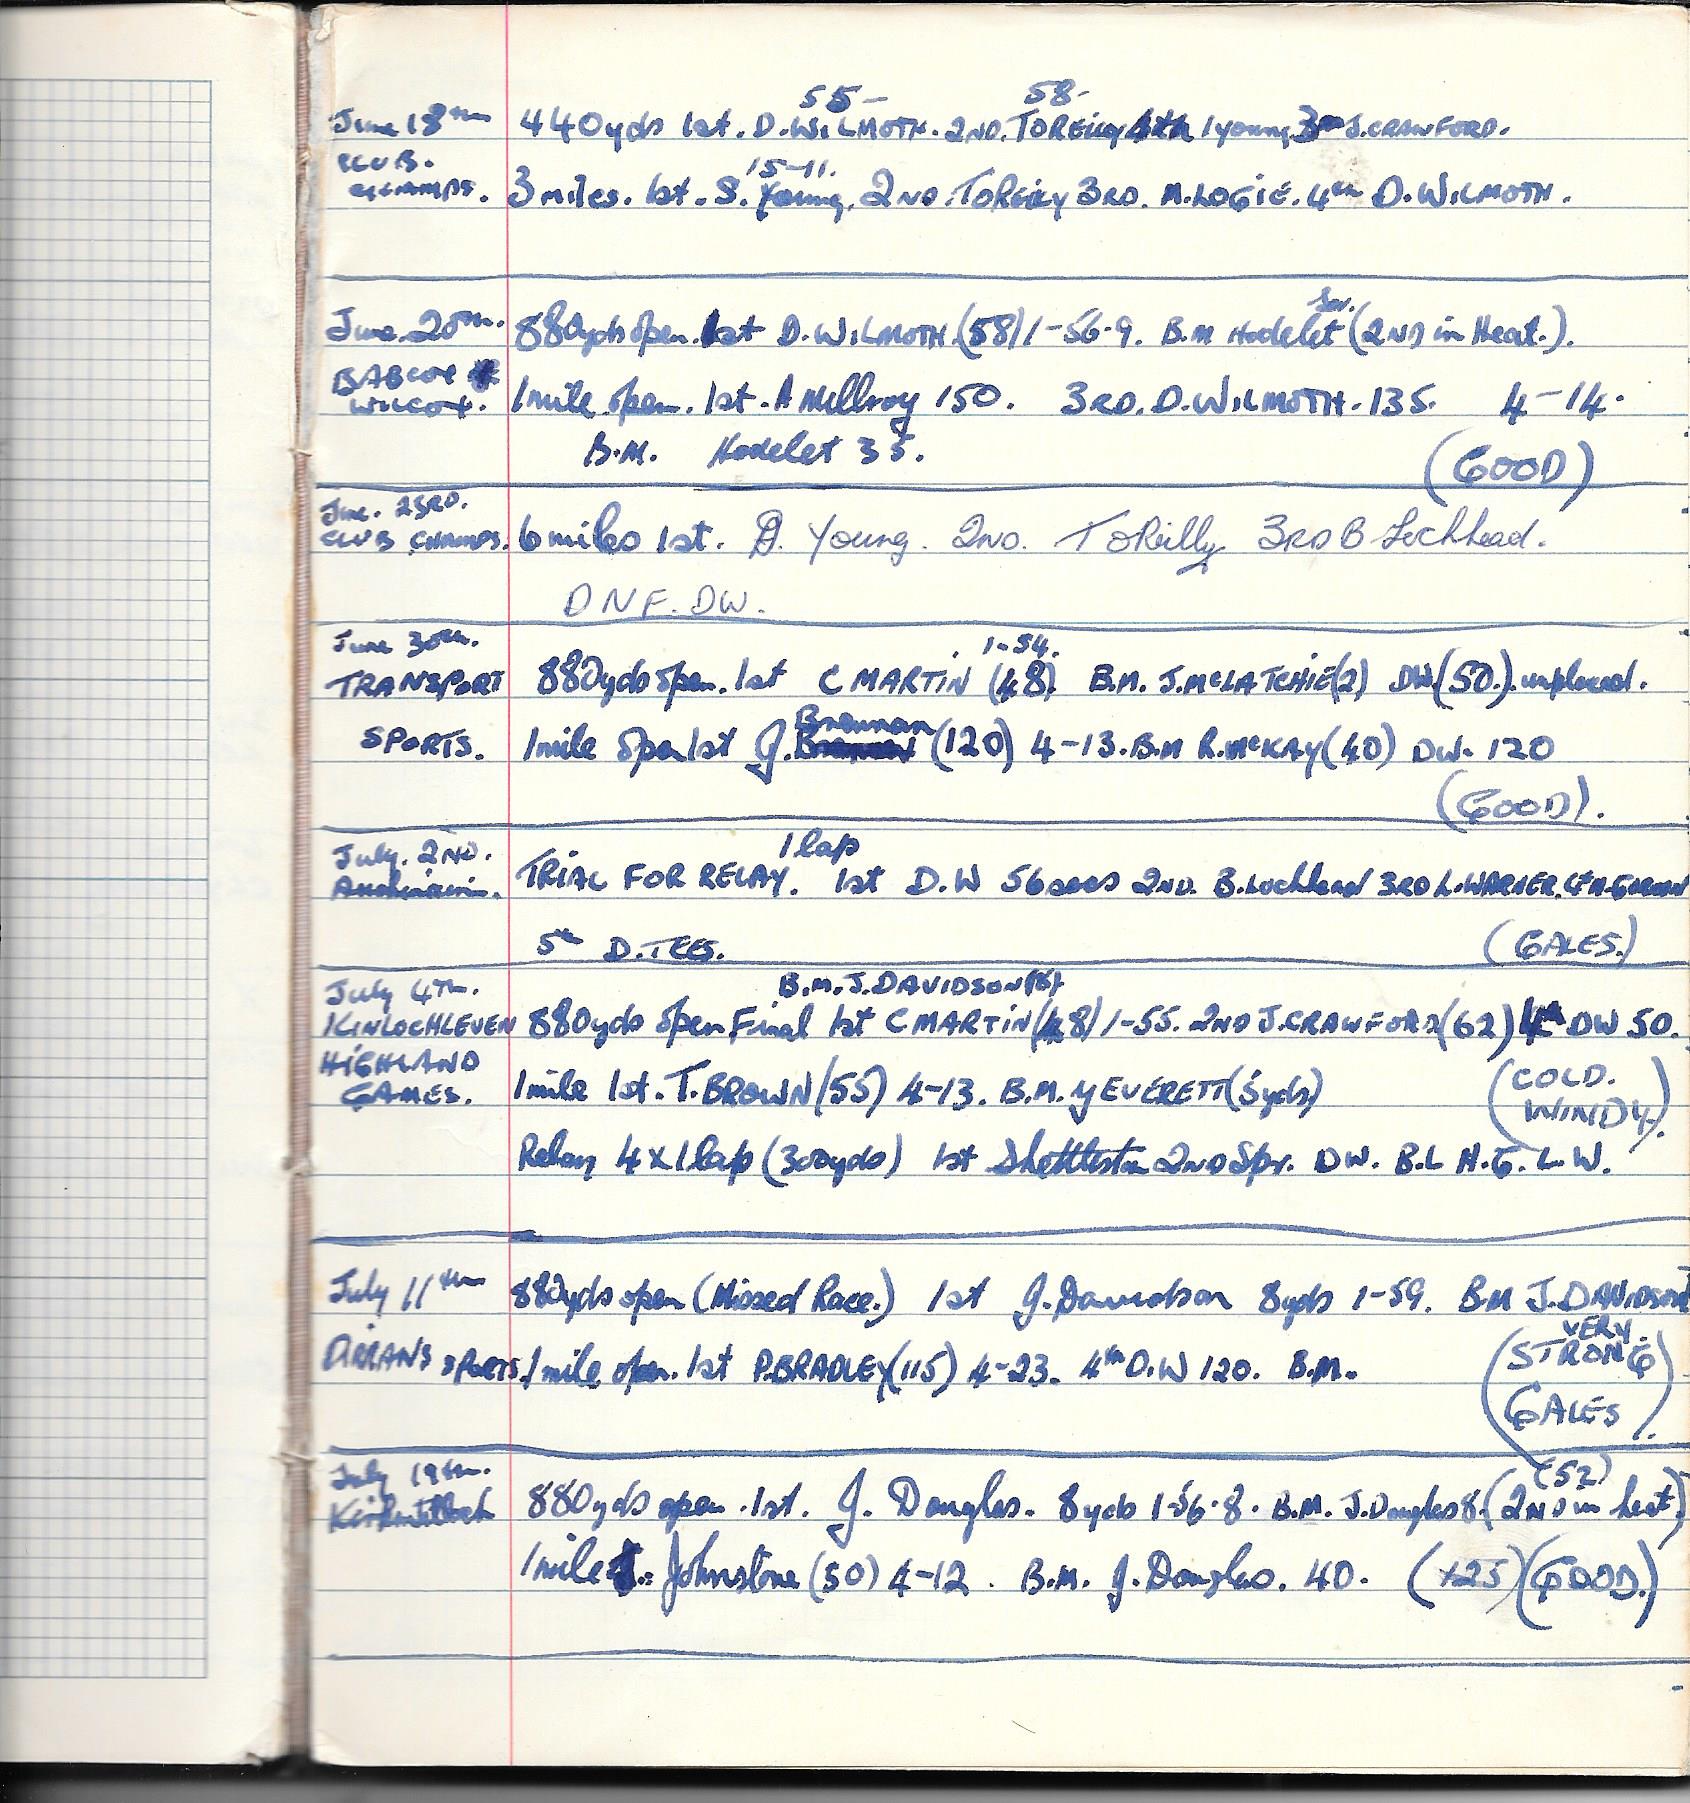 55- 58-
June 18th 440yds 1st. D. WILMOTH. 2ND. TOReilly 4th I young 3rd J. CRAWFORD.
CLUB. 15-11.
CHAMPS. 3 miles. 1st. S. Young. 2ND. TOReilly 3RD. M. LOGIE. 4th D. WILMOTH.
June 20th. 880yds open. 1st D. WILMOTH (58) 1-56.9. B.M Hodelet (2ND in Heat.).
BABCOX &
WILCOX. 1mile open. 1st. A McIlroy 150. 3RD. D. WILMOTH. 135. 4-14.
B.M. Hodelet 35. (GOOD)
June. 23RD.
CLUB CHAMPS. 6 miles 1st. Young. 2ND. T OReilly 3RD B Lochhead.
DNF. DW.
June 30th. 1-54.
TRANSPORT 880yds open. 1st C MARTIN (48). B.M. J. McLATCHIE(2) DW(50). unplaced.
Brennan
SPORTS. 1mile open 1st J. (120) 4-13. B.M R. McKAY(40) DW. 120
(GOOD).
July. 2ND. 1 lap
TRIAL FOR RELAY. 1st D.W 56secs 2ND. B. Lochhead 3RD L. WARNER. 4th H. GORMAN
5th D. TEES. (GALES.)
July 4TH. B.M. J. DAVIDSON(8)
KINLOCHLEVEN 880yds open Final 1st C MARTIN(48) 1-55. 2ND J. CRAWFORD(62) 4th DW 50.
HIGHLAND
GAMES. 1mile 1st. T. BROWN (55) 4-13. B.M. G EVERETT(5yds) (COLD.
WINDY.)
Relay 4 x 1 lap (300yds) 1st Shettleston 2ND Spr. DW. B.L H.G. L.W.
July 11th 880yds open (Missed Race.) 1st J. Davidson 8yds 1-59. B.M J. DAVIDSON
DIRRANS SPORTS. 1mile open. 1st P. BRADLEY(115) 4-23. 4th D.W 120. B.M. (VERY.
STRONG
GALES.)
July 19th. (52)
Kirkintilloch 880yds open. 1st. J. Douglas. 8yds 1-56.8. B.M. J. Douglas 8. (2ND in heat)
1mile Johnstone (50) 4-12. B.M. J. Douglas. 40. (GOOD.)